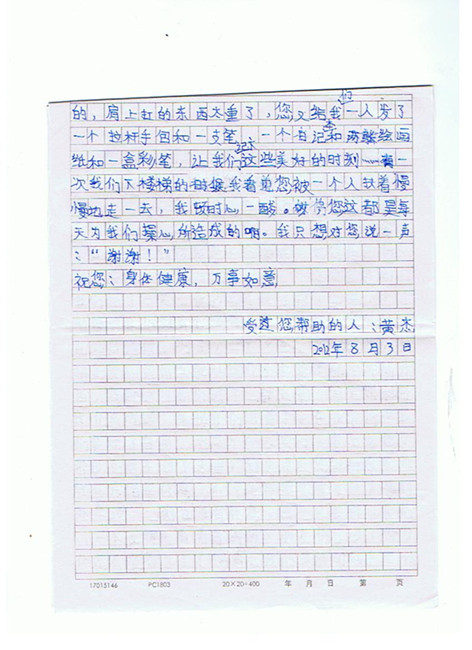 的，肩上扛的东西太重了，您又给我们一人发了
一个拉杆手包和一支笔、一个日记本和两张绘画
纸和一盒彩笔，让我们记下这些美好的时刻……有一
次我们下楼梯的时候我看见您被一个人扶着慢
慢地走一去，我顿时心一酸。您这都是每
天为我们操心所造成的啊。我只想对您说一声
：“谢谢！”
祝您：身体健康，万事如意
受过您帮助的人：黄杰
2012年8月3日
17015146 PC1803 20×20=400 年 月 日 第 页